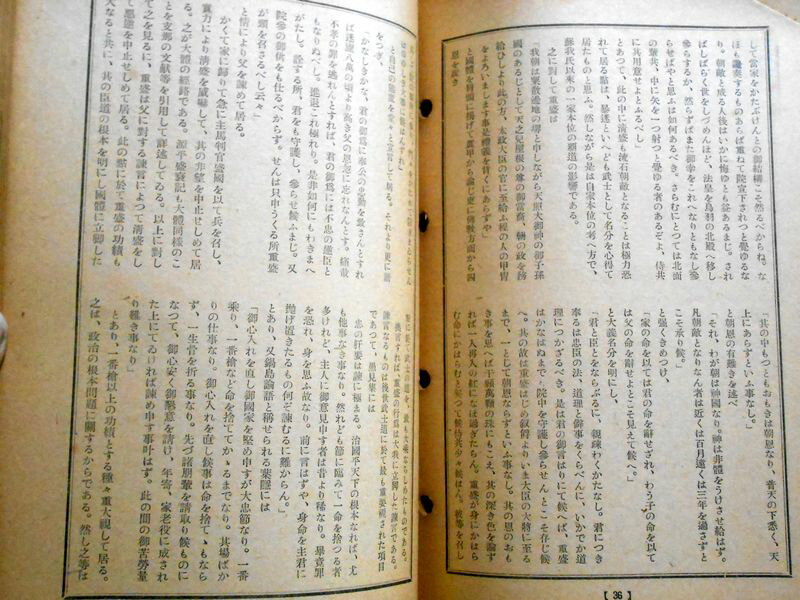 して當家をかたぶけんとの御結構こそ然るべからね。な
ほも讒奏するものあらば重ねて院宣下されつと覺ゆるな
り。朝敵と成る人後はいかに悔ゆとも益あるまじ。され
ばしばらく世をしづめんほど、法皇を鳥羽の北殿へ移し
參らするか、然らずばまた御幸をこれへなりともなし參
らせばやと思ふは如何あるべき。さらむにとつては北面
の輩共、中に矢を一つ射つと覺ゆる者のあるぞよ、侍共
に其用意せよとふるべし」
とあつて、此の中に清盛も流石朝敵となることは極力恐
れて居る點は、暴逆といへども武士として名分を心得て
居たものと思ふ。然しながら是は自家本位の考へ方で、
蘇我氏以來の一家本位の覇道の影響である。
之に對して重盛は
「我朝は粟散邊地の堺と申しながら天照大御神の御子孫
國のあるじとして天之兒屋根の尊の御苗裔、朝の政を務
給ひしより此の方、太政大臣の官に至給ふ程の人の甲冑
をよろいまします事是禮義を背くにあらずや」
と國體を前頭に揚げて眞甲から諭し更に佛教方面から四
恩を說き
「其の中もつともおもきは朝恩なり、普天の下悉く、天
上にあらずといふ事なし。」
と朝恩の有難きを述べ
「それ、わが朝は神國なり。神は非禮をうけさせ給はず。
凡朝敵となりなん者は近くは百日遠くは三年を過さずと
こそ承り候。」
と强くきめつけ、
「家の命を以ては君の命を辭せざれ、わう子の命を以て
は父の命を辭せよとこそ見えて候へ。」
と大義名分を明にし、
「君と臣とをならぶるに、親疎わくかたなし。君につき
奉るは忠臣の法、道理と僻事をくらべんに、いかでか道
理につかざるべき。是は君の御言はりにて候へば、重盛
はかなはぬまで、院中を守護し參らせんとこそ存じ候
へ。其の故は重盛はじめ敍爵よりいま大臣の大將に至る
まで、一として朝恩ならずといふ事なし。其の恩のおも
き事を思へば千顆萬顆の珠にもこえ、其の深き色を論ず
れば一入再入の紅にもなほ過ぎたらん。重盛が身にかはら
む命にかはらむと契つて候侍共少々候はん。彼等を召し
【 36 】
「かなしきかな、君の御爲に奉公の忠勤を致さんとすれ
ば迷盧八萬の頂より高き父の恩忽に忘れなんとす。痛哉
不孝の罪を逃れんとすれば、君の御爲には不忠の逆臣と
もなりぬべし。進退これ極れり。是非如何にもわきまへ
がたし。詮する所、君をも守護し、參らせ候ふまじ。又
院參の御供をも仕るべからず。せんは只申うくる所重盛
が頸を召さるべし云々」
と情により父を諫めて居る。
かくて家に歸りて急に主馬判官盛國を以て兵を召し、
實力により清盛を威嚇して、其の非望を中止せしめて居
る。之が大體の經路である。源平盛衰記も大體同樣のこ
とを支那の文献等を引用して詳述してゐる。以上に對し
て之を見るに、重盛は父に對する諫言によつて清盛をし
て惡逆を中止せしめて居る。此の點に於て重盛の功績も
大なると共に、其の臣道の根本を明にし國體に立脚した
諫言なるものは後世武士道に於て最も重要視された項目
であつて、葉隱集には
忠の肝要は諫に極まる。治國平天下の根本なれば、尤
も他事なき事なり。然れども節に臨みて一命を捨つる者
多けれど、主人に御意見申す者は昔より稀なり。畢竟罪
を恐れ、身を思ふ故なり。前に言はずや、身命を主君に
拋げ置きたるもの何ぞ諫むるに難からん。」
とあり、又鍋島論語と稱せられる葉隱には
「御心入れを直し御國家を堅め申すが大忠節なり。一番
乘り、一番槍など命を捨ててかゝるまでなり。其場ばか
りの仕事なり。御心入れを直し候事は命を捨てゝもなら
ず、一生骨を折る事なり。先づ諸朋輩を請取り候ものに
なつて、御心安く御懇意を請け、年寄、家老役に成され
た上にてなければ諫め申す事叶はず。此の間の御苦勞量
り難き事なり。」
とあり、一番槍以上の功績とする種々重大視して居る。
之は、政治の根本問題に關するからである。然し之等は